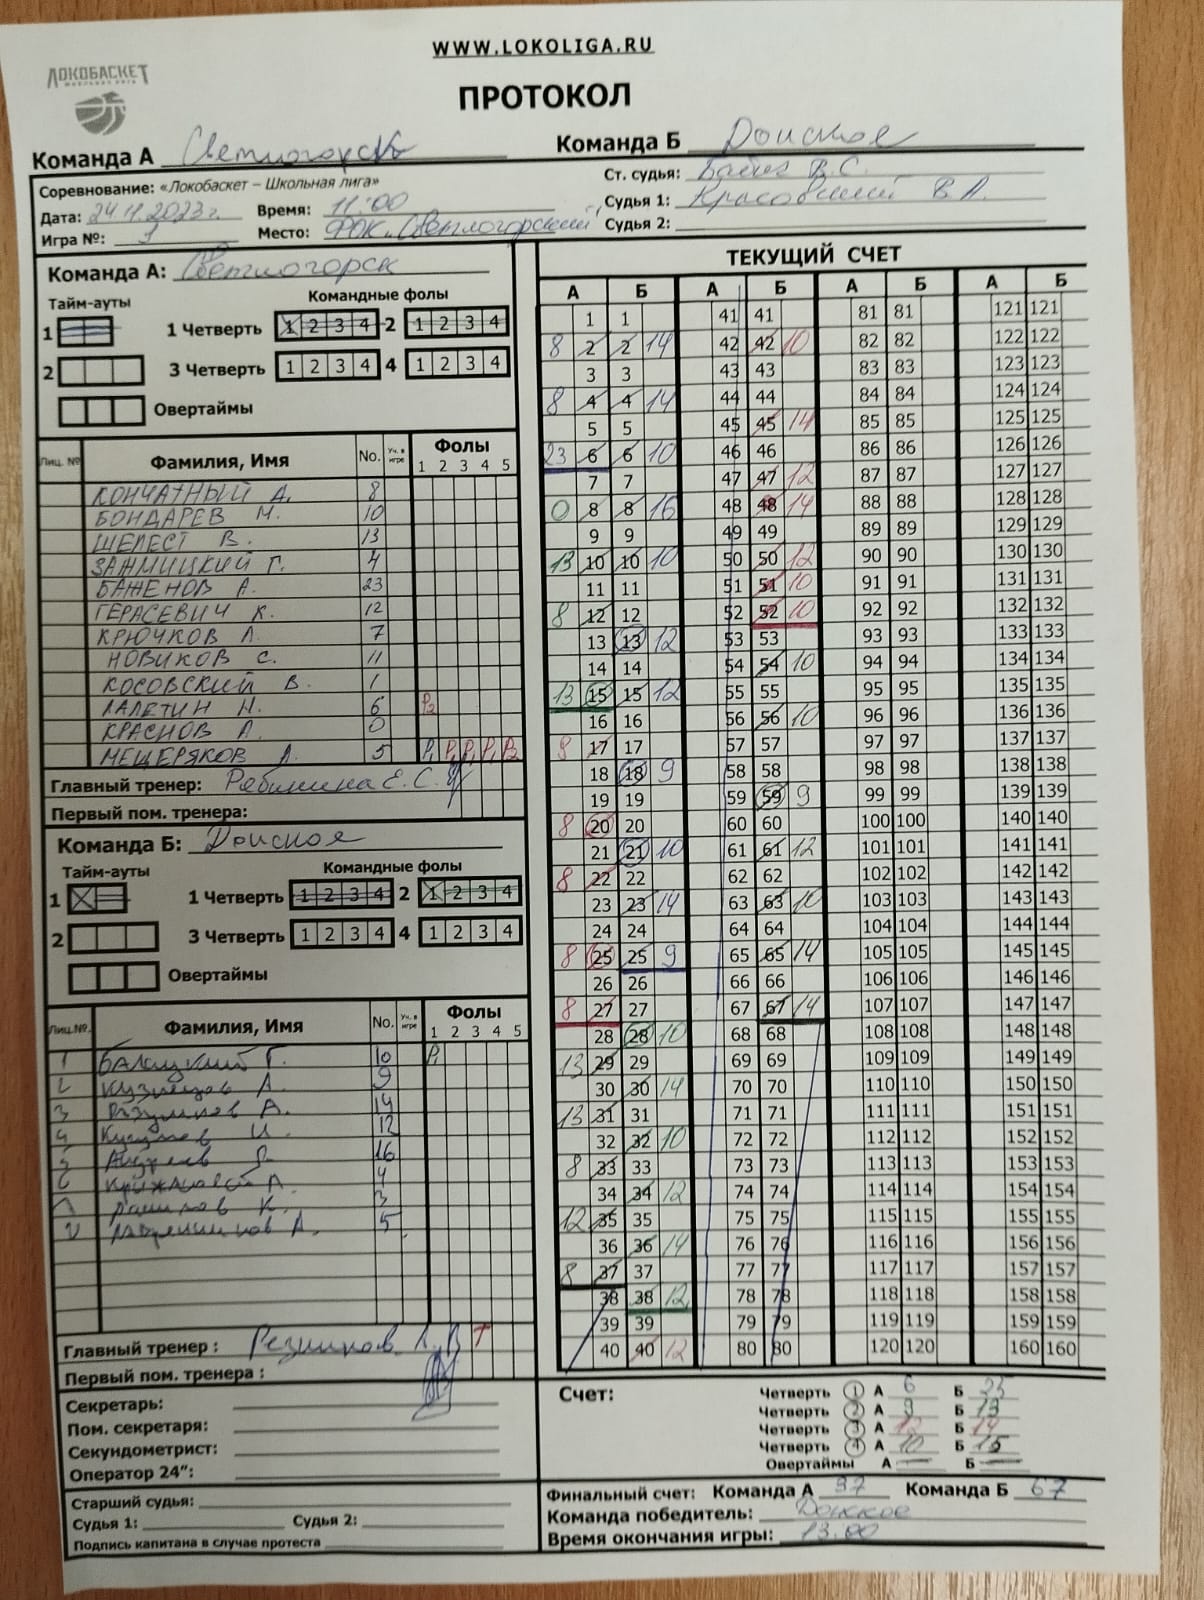 WWW.LOKOLIGA.RU
ЛОКОБАСКЕТ
ПРОТОКОЛ
Команда А Светлогорск Команда Б Донское
Соревнование: «Локобаскет – Школьная лига» Ст. судья:
Дата: 24.11.2023г. Время: 11:00 Судья 1: Красовский В.А.
Игра №: 1 Место: ФОК „Светлогорский“ Судья 2:
Команда А: Светлогорск
Тайм-ауты Командные фолы
1 1 Четверть 1 2 3 4 2 1 2 3 4
2 3 Четверть 1 2 3 4 4 1 2 3 4
Овертаймы
Лиц. № Фамилия, Имя No. Уч. в игре Фолы 1 2 3 4 5
КОНЧАТНЫЙ А. 8
БОНДАРЕВ М. 10
ШЕЛЕСТ В. 13
ЗАНМИЦКИЙ Г. 4
БАЖЕНОВ А. 23
ГЕРАСЕВИЧ К. 12
КРЮЧКОВ Л. 7
НОВИКОВ С. 11
КОСОВСКИЙ В. 1
ЛАЛЕТИН Н. 6 P2
КРАСНОВ А. 0
МЕЩЕРЯКОВ А. 5 P1 P1 P1 P1 P2
Главный тренер: Рябинина Е.С.
Первый пом. тренера:
Команда Б: Донское
Тайм-ауты Командные фолы
1 1 Четверть 1 2 3 4 2 1 2 3 4
2 3 Четверть 1 2 3 4 4 1 2 3 4
Овертаймы
Лиц.№. Фамилия, Имя No. Уч. в игре Фолы 1 2 3 4 5
1 Г. 10 P1
2 Кузнецов А. 9
3 А. 14
4 И. 12
5 16
6 А. 4
К. 3
А. 5
Главный тренер : Резников А.В T
Первый пом. тренера :
Секретарь:
Пом. секретаря:
Секундометрист:
Оператор 24”:
Старший судья:
Судья 1: Судья 2:
Подпись капитана в случае протеста
ТЕКУЩИЙ СЧЕТ
А Б А Б А Б А Б
1 1 41 41 81 81 121 121
8 2 2 14 42 42 10 82 82 122 122
3 3 43 43 83 83 123 123
8 4 4 14 44 44 84 84 124 124
5 5 45 45 14 85 85 125 125
23 6 6 10 46 46 86 86 126 126
7 7 47 47 12 87 87 127 127
0 8 8 16 48 48 14 88 88 128 128
9 9 49 49 89 89 129 129
13 10 10 10 50 50 12 90 90 130 130
11 11 51 51 10 91 91 131 131
8 12 12 52 52 10 92 92 132 132
13 13 12 53 53 93 93 133 133
14 14 54 54 10 94 94 134 134
13 15 15 12 55 55 95 95 135 135
16 16 56 56 10 96 96 136 136
8 17 17 57 57 97 97 137 137
18 18 9 58 58 98 98 138 138
19 19 59 59 9 99 99 139 139
8 20 20 60 60 100 100 140 140
21 21 10 61 61 12 101 101 141 141
8 22 22 62 62 102 102 142 142
23 23 14 63 63 10 103 103 143 143
24 24 64 64 104 104 144 144
8 25 25 9 65 65 14 105 105 145 145
26 26 66 66 106 106 146 146
8 27 27 67 67 14 107 107 147 147
28 28 10 68 68 108 108 148 148
13 29 29 69 69 109 109 149 149
30 30 14 70 70 110 110 150 150
13 31 31 71 71 111 111 151 151
32 32 10 72 72 112 112 152 152
8 33 33 73 73 113 113 153 153
34 34 12 74 74 114 114 154 154
12 35 35 75 75 115 115 155 155
36 36 14 76 76 116 116 156 156
8 37 37 77 77 117 117 157 157
38 38 12 78 78 118 118 158 158
39 39 79 79 119 119 159 159
40 40 12 80 80 120 120 160 160
Счет: Четверть 1 А 6 Б 25
Четверть 2 А 9 Б 13
Четверть 3 А 12 Б 14
Четверть 4 А 10 Б 15
Овертаймы А — Б —
Финальный счет: Команда А 37 Команда Б 67
Команда победитель: Донское
Время окончания игры: 13:00